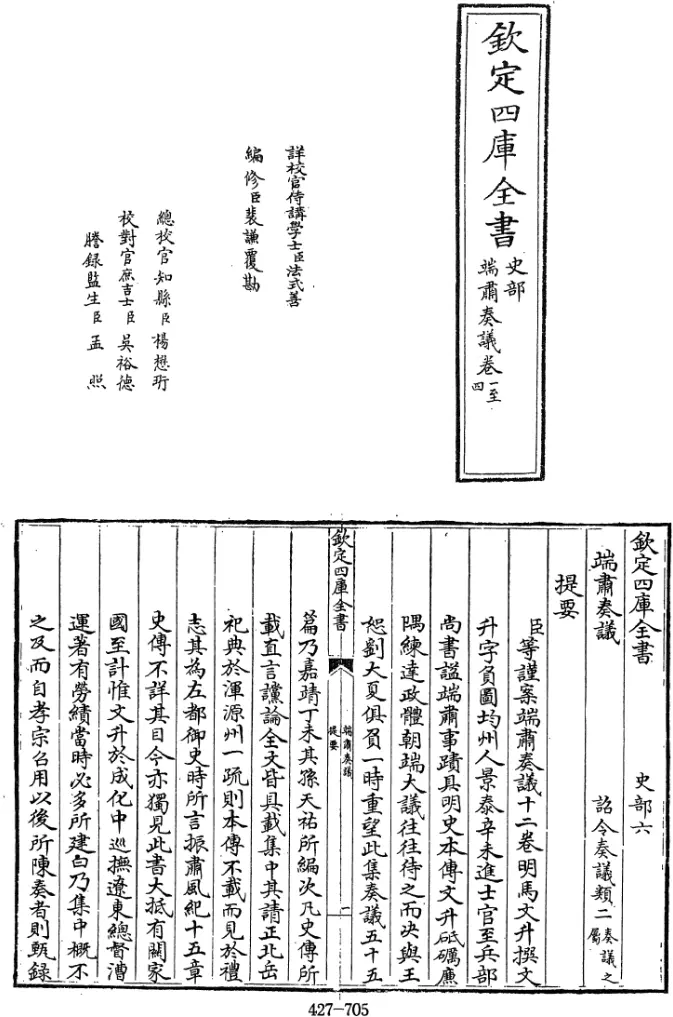 欽定四庫全書
史部
端肅奏議卷一至四
詳校官侍講學士臣法式善
編修臣裴謙覆勘
總校官知縣臣楊懋珩
校對官庶吉士臣吳裕德
謄錄監生臣孟照
欽定四庫全書
史部六
端肅奏議
詔令奏議類二奏議之屬
提要
臣等謹案端肅奏議十二卷明馬文升撰文
升字負圖均州人景泰辛未進士官至兵部
尚書謚端肅事蹟具明史本傳文升砥礪廉
隅練達政體朝端大議往往待之而决與王
恕劉大夏俱負一時重望此集奏議五十五
欽定四庫全書
端肅奏議
提要
一
篇乃嘉靖丁未其孫天祐所編次凡史傳所
載直言讜論全文皆具載集中其請正北岳
祀典於渾源州一疏則本傳不載而見於禮
志其為左都御史時所言振肅風紀十五章
史傳不詳其目今亦獨見此書大抵有關家
國至計惟文升於成化中巡撫遼東總督漕
運著有勞績當時必多所建白乃集中概不
之及而自孝宗召用以後所陳奏者則甄録
427-705